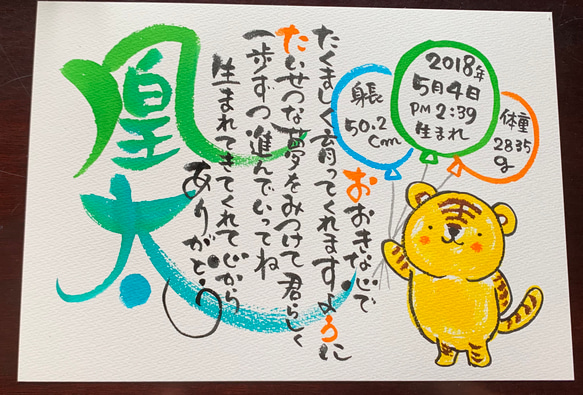 凰太
2018年
5月4日
PM 2:39
生まれ
身長
50.2
cm
体重
2835
g
おおきな心で
たくましく育ってくれますように
たいせつな夢をみつけて君らしく
一歩ずつ進んでいってね
生まれてきてくれて心から
ありがとう